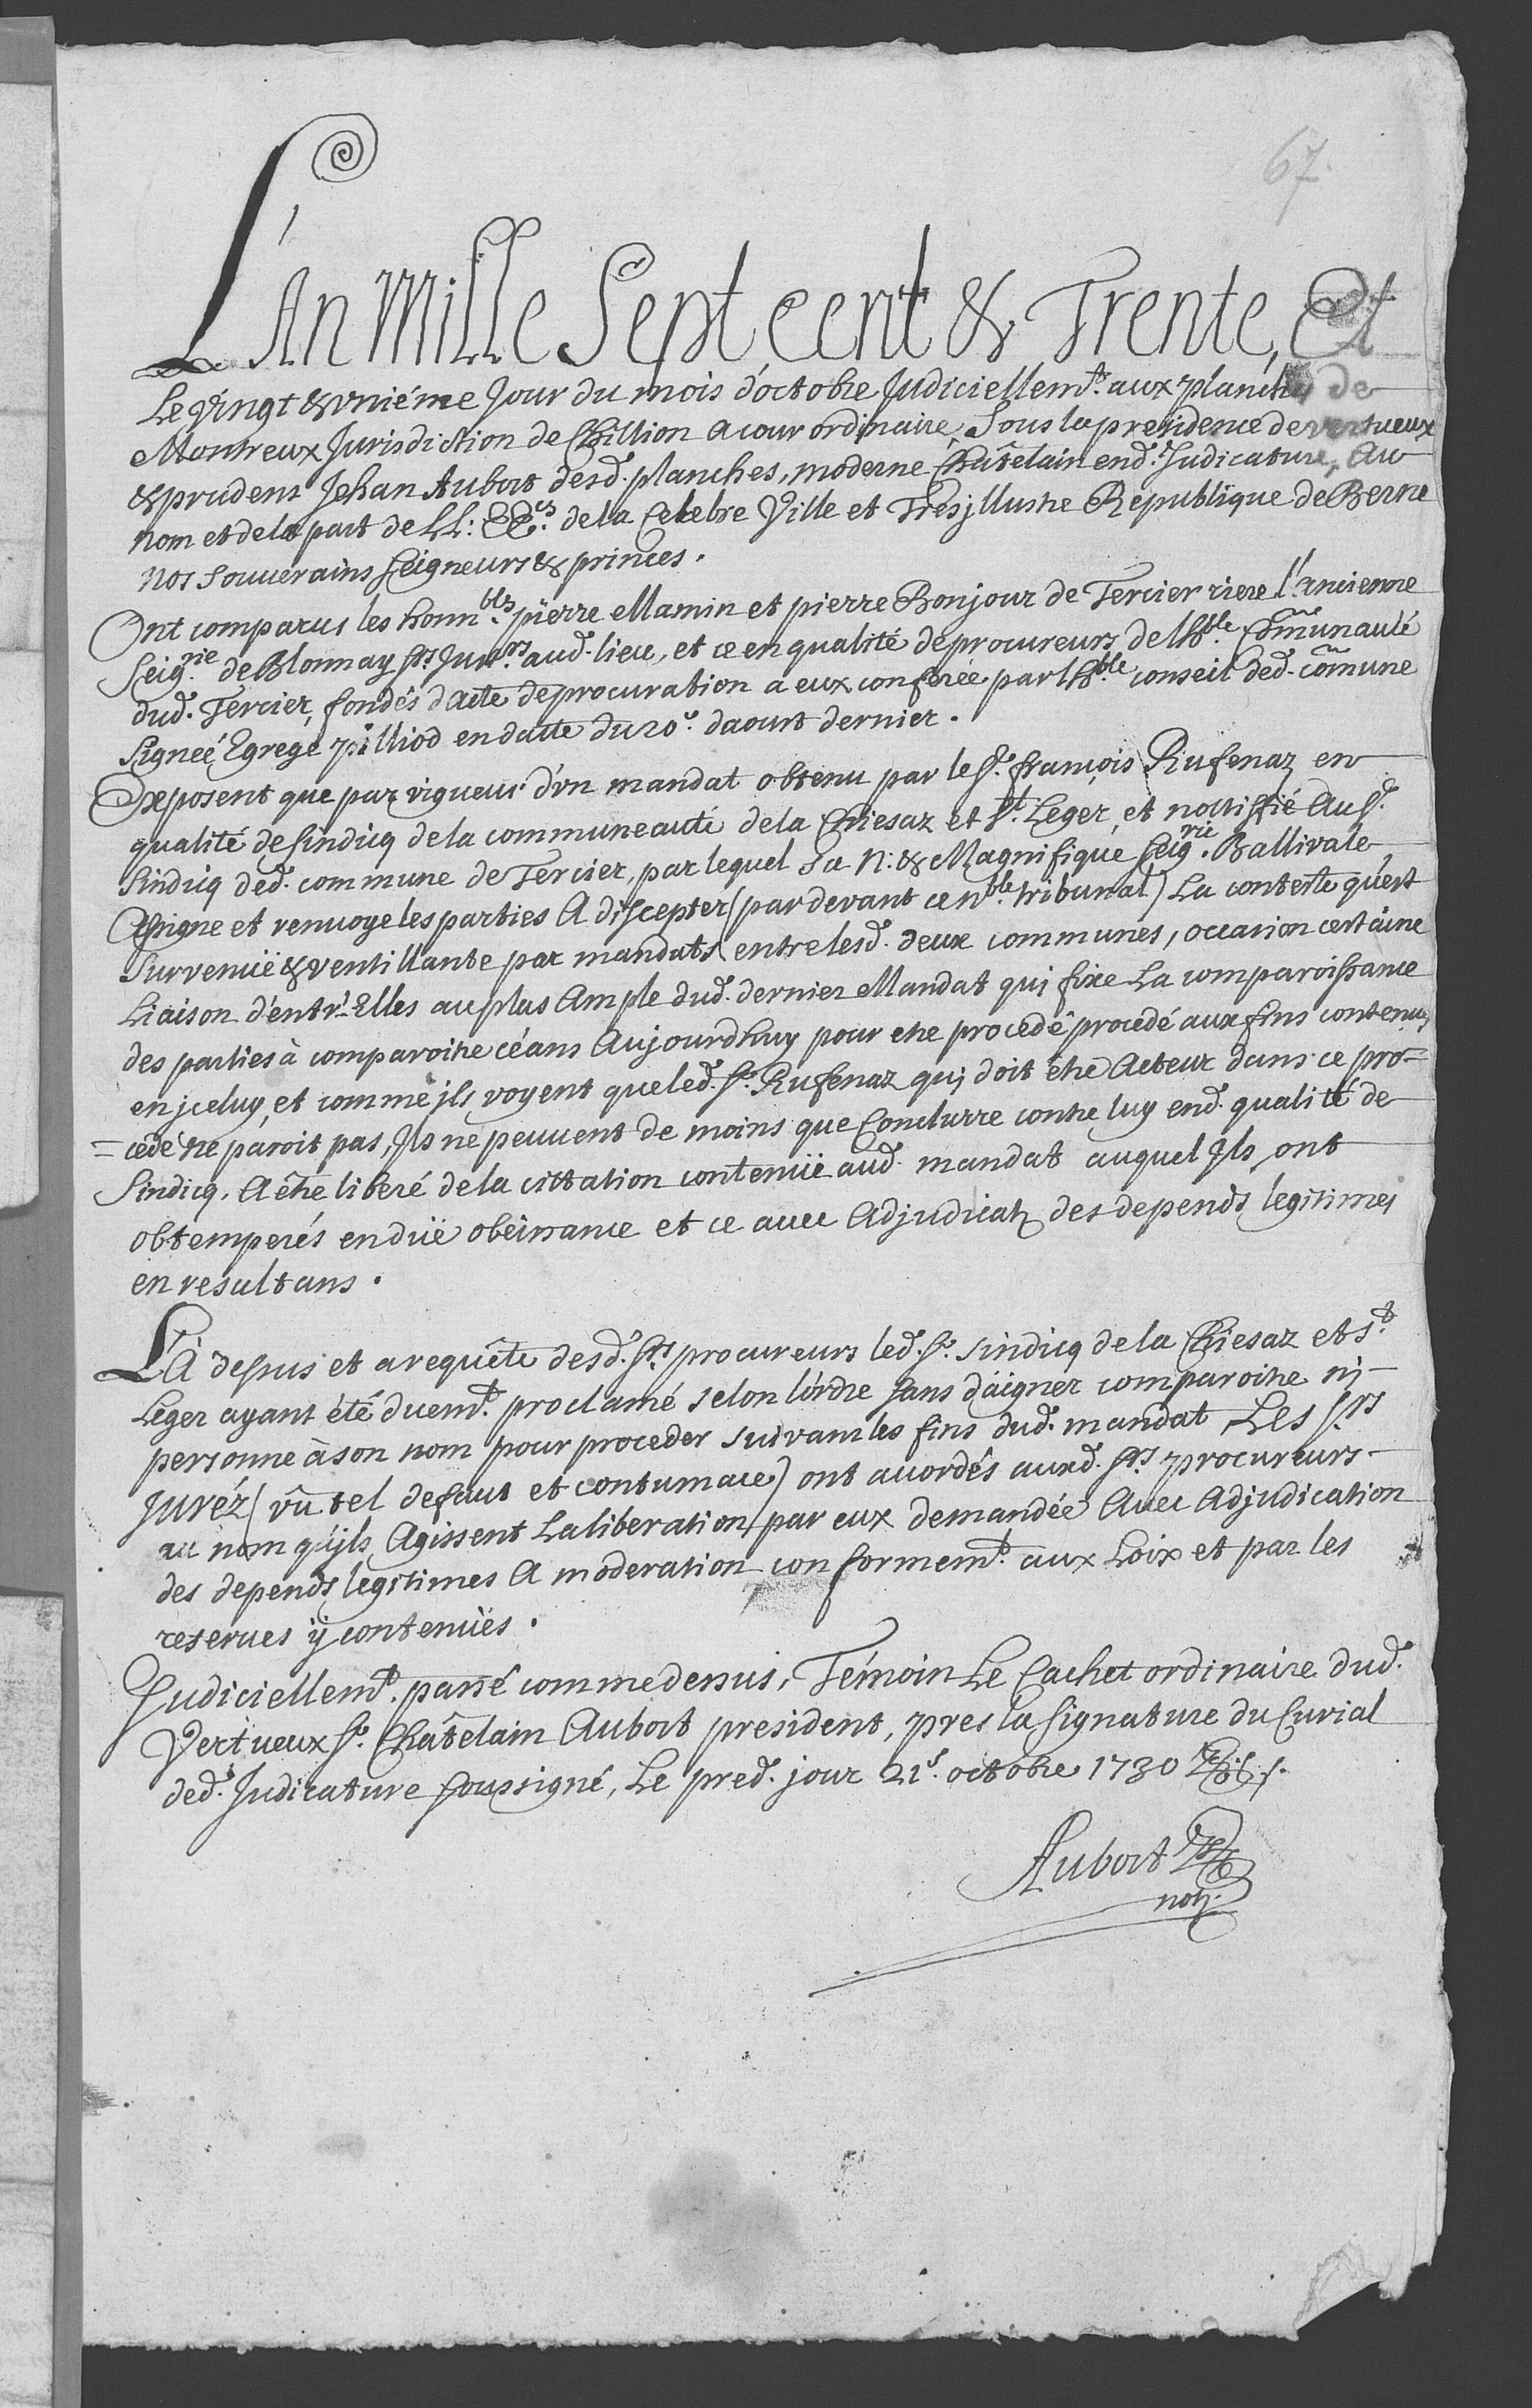 67.
L'An Mille Sept cent & Trente, Et
Le vingt & vniéme Jour du mois d'octobre Judiciellemt. aux planches de
Montreux Jurisdiction de Chillion a cour ordinaire, Sous la presidence de vertueux
& prudent Jehan Aubort desd. planches, moderne Châtelain end. Judicature, Au
nom et de la part de LL: EEes. de la Celebre Ville et Tres jllustre Republique de Berne
nos Souuerains Seigneurs & princes.
Ont comparus les honnbls. pierre Mamin et pierre Bonjour de Tercier riere l'Ancienne
Seigrie. de Blonnay Srs. Jurrs. aud. lieu, et ce en qualité de procureurs de lhble. Comunauté
dud. Tercier, fondés d'acte de procuration a eux conferée par lhble. conseil ded. comune
Signeé Egrege pilliod en datte du 20e. daoust dernier.
Exposent que par vigueur d'vn mandat obtenu par le Sr. françois Rufenaz en
qualité de Sindicq de la communeauté de la Chiesaz et St. Leger, et nottiffié Au Sr.
Sindicq ded. commune de Tercier, par lequel Sa N: & Magnifique Seigrie. Ballivale
Assigne et renuoye les parties A discepter (par devant ce nble. tribunal) La conteste qu'est
Survenüe & ventillante par mandats entre lesd. deux communes, occasion certaine
Liaison d'entr'Elles au plus Ample dud. dernier Mandat qui fixe La comparoissance
des parties à comparoitre céans Aujourdhuy pour etre procedé procedé aux fins contenus
en jceluy, et comme jls voyent que led. Sr. Rufenaz qui doit être Acteur dans ce pro=
=cedé ne paroit pas, Jls ne peuuent de moins que Conclurre contre luy end. qualité de
Sindicq, A être liberé de la cittation contenüe aud. mandat auquel Jls ont
obtemperés en düe obeissance et ce auec Adjudicaon des depends legitimes
en resultans.
Là dessus et a requête desd. Srs. procureurs led. Sr. Sindicq de la Chiesaz et St.
Leger ayant été duemt. proclamé selon l'ordre sans daigner comparoitre ni
personne à son nom pour proceder suivam les fins dud. mandat Les Srs.
Juréz (vû tel defaut et contumace) ont acordés auxd. Srs. procureurs
au nom qu'jls Agissent La liberation par eux demandée Auec Adjudication
des depends legitimes A moderation conformemt. aux Loix et par les
reserues ÿ contenües.
Judiciellemt. passé comme dessus, Témoin Le Cachet ordinaire dud.
Vertueux Sr. Châtelain Aubort president, pres la Signature du Curial
ded. Judicature soussigné, Le pred. jour 21e. octobre 1730
Aubort
not.